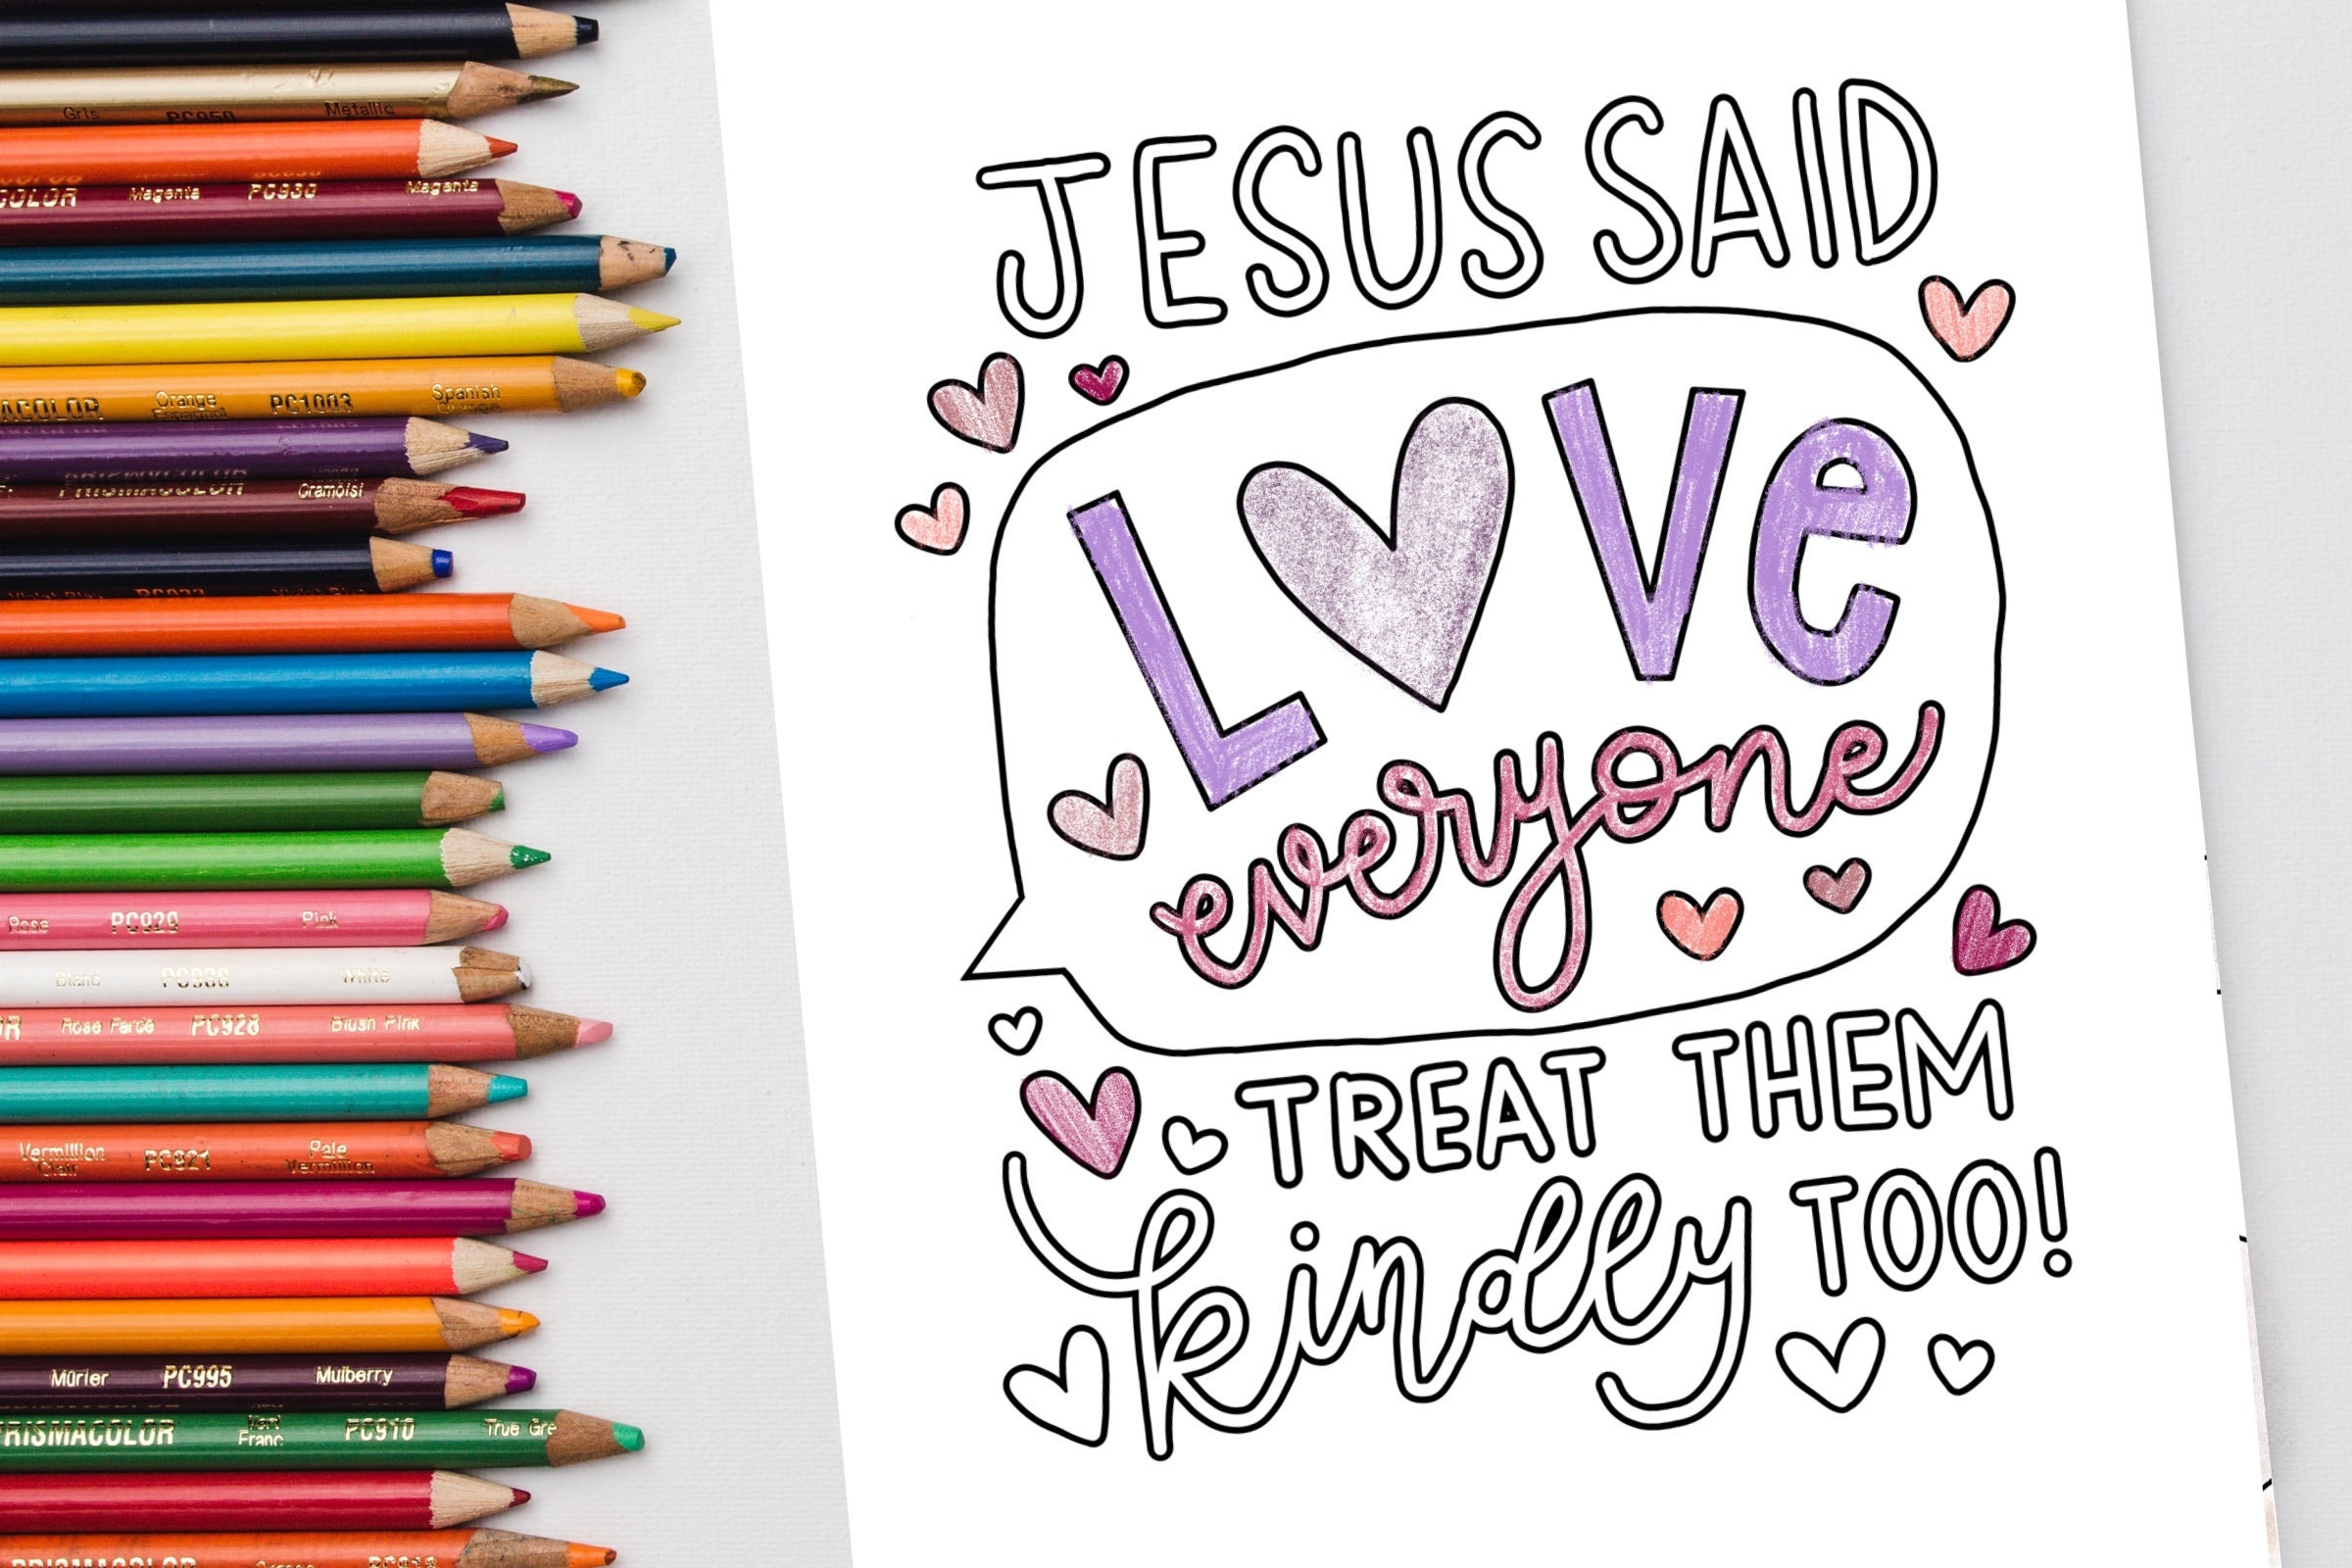 Gris PC950 Metallic
COLOR Magenta PC930 Magenta
ACOLOR Orange PC1003 Spanish
PRISMACOLOR Cramoisi
Rose PC929 Pink
Blanc PC938 White
OR Rose Foncé PC928 Blush Pink
Vermillion Clair PC921 Pale Vermillion
Mûrier PC995 Mulberry
PRISMACOLOR Vert Franc PC910 True Gre
PRISMACOLOR
JESUS SAID
L VE
everyone
TREAT THEM
kindly TOO!